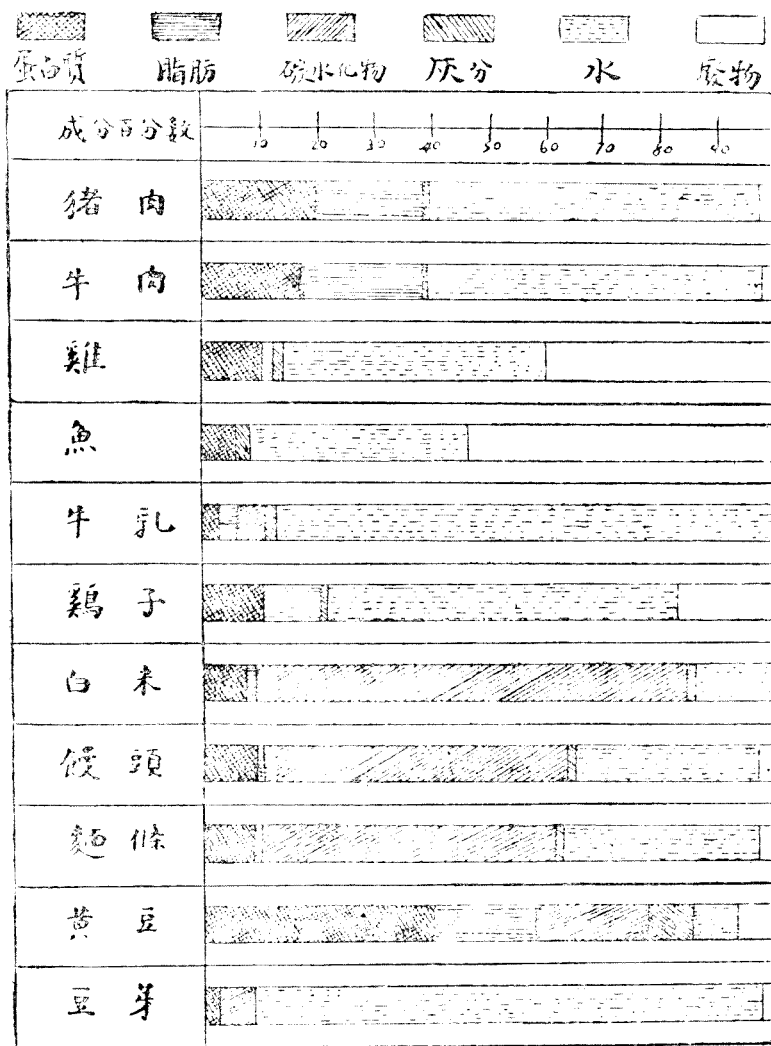 蛋白質 脂肪 碳水化物 灰分 水 廢物
成分百分數 10 20 30 40 50 60 70 80 90
猪肉
牛肉
雞
魚
牛乳
鷄子
白米
饅頭
麵條
黃豆
豆芽